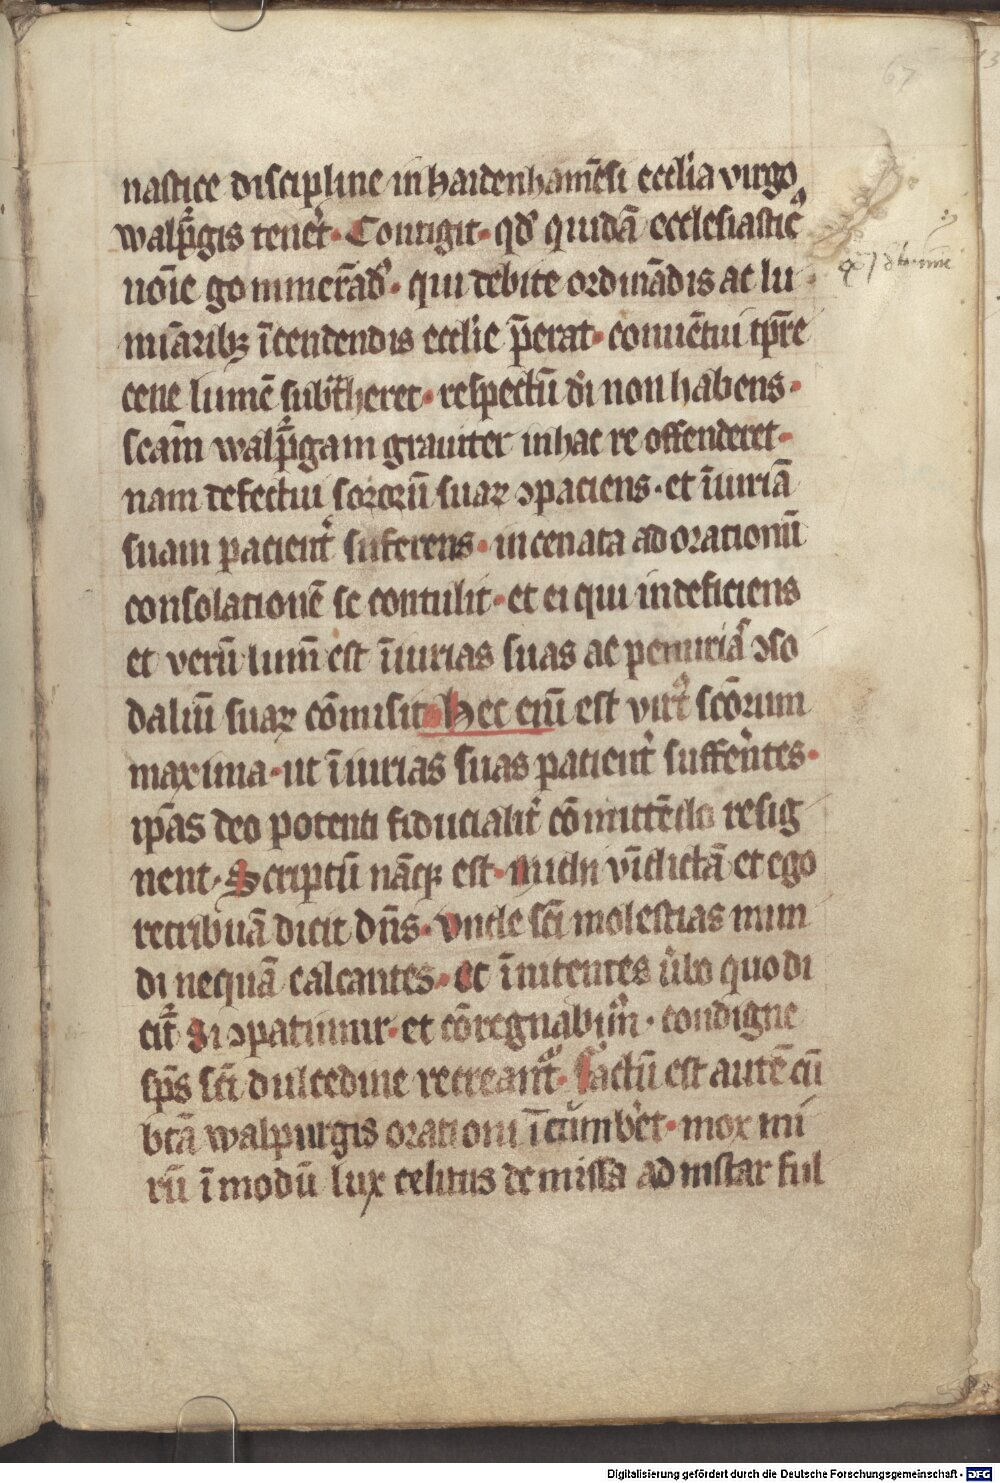 67
nastice discipline in haidenhamēsi eccl̄ia virgo
walp̄gis tenet᷑. Contigit. qđ quidā ecclesiasticꝰ
nōie gommerādꝰ. qui debite ordinādis ac lu
mīaribꝫ īcendendis eccl̄ie p̄erat. conuētui tp̄re
cene lumē subt̄heret. respectū di̅ non habens.
scām walp̄gam grauiter in hac re offenderet.
nam defectui sororū suaꝝ ꝯpaciens. et īiuriā
suam pacient᷑ sufferens. incenata ad orationū
consolationē se contulit. et ei qui indeficiens
et verū lumē est īiurias suas ac penuriā ꝯso
daliū suaꝝ cōmisit. Hec enī est virtꝰ scōrum
maxima. ut īiurias suas pacient᷑ suffēntes.
ip̄as deo potenti fiducialit᷑ cōmittēdo resig
nent. Scriptū nāqꝫ est. Michi vīdictā et ego
retribuā dicit dn̄s. Vnde sc̄i molestias mun
di nequā calcantes. et īnitentes v᷑bo quo di
cit᷑ Si ꝯpatimur. et cōregnabimꝰ. condigne
sp̄s sc̄i dulcedine recreant᷑. Factū est autē cū
bt̄a walpurgis orationi īcūmb᷑et. mox mi
rū ī modū lux celitus demissa ad instar ful
Digitalisierung gefördert durch die Deutsche Forschungsgemeinschaft - DFG